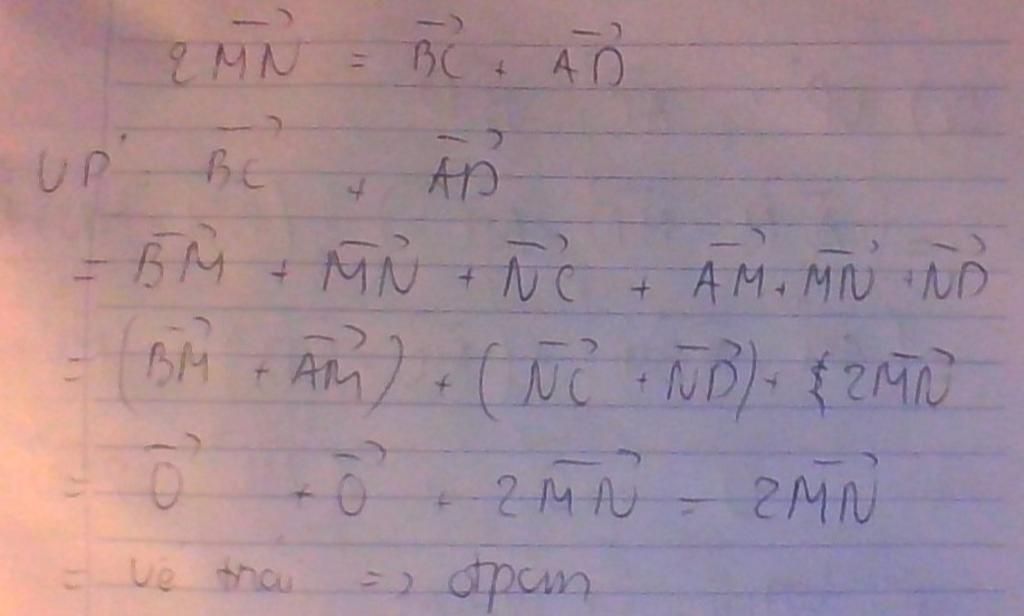 2MN→ = BC→ + AD→
VP BC→ + AD→
= BM→ + MN→ + NC→ + AM→ + MN→ + ND→
= (BM→ + AM→) + (NC→ + ND→) + 2MN→
= 0→ + 0→ + 2MN→ = 2MN→
= vế trái => đpcm